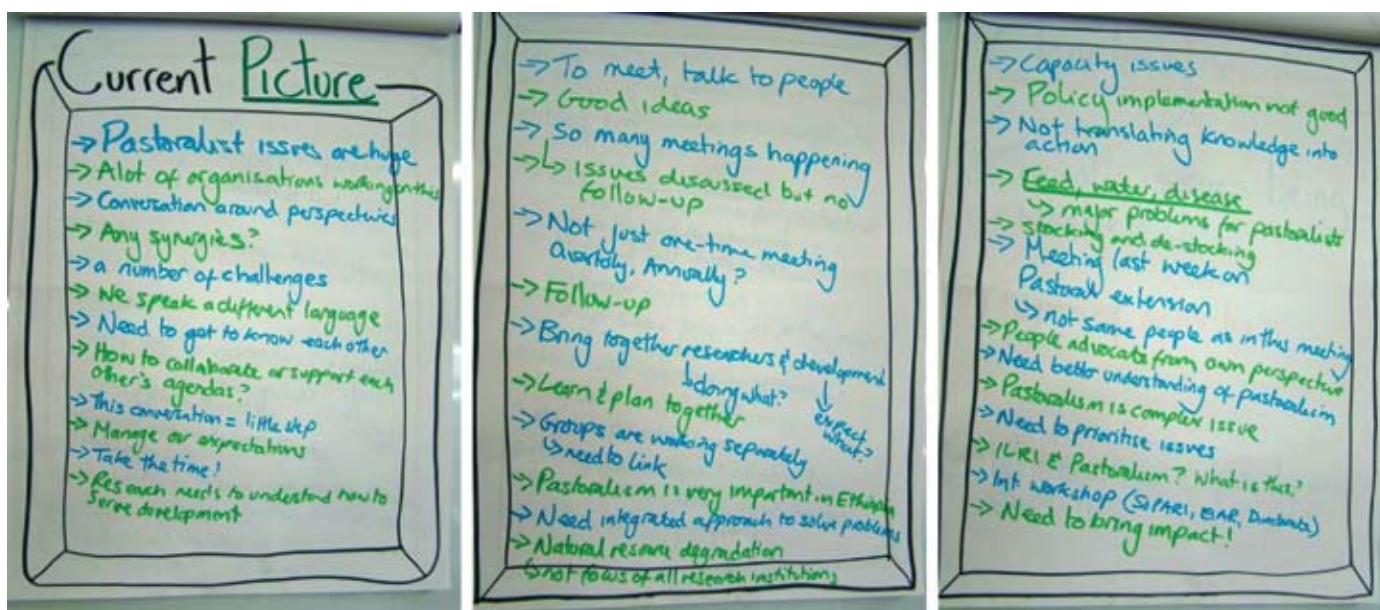 Current Picture
→ Pastoralist issues are huge
→ Alot of organisations working on this
→ Conversation around perspectives
→ Any synergies?
→ a number of challenges
→ We speak a different language
→ Need to get to know each other
→ How to collaborate or support each
other's agendas?
→ This conversation = little step
→ Manage our expectations
→ Take the time!
→ Research needs to understand how to
serve development
→ To meet, talk to people
→ Good ideas
→ So many meetings happening
→ ↳ Issues discussed but no
follow-up
→ Not just one-time meeting
Quartely, Annually?
→ Follow-up
→ Bring together researchers & development
↳ doing what?
↓ expect what?
→ Learn & plan together
→ Groups are working separately
↳ need to link
→ Pastoralism is very important in Ethiopia
→ Need integrated approach to solve problems
→ Natural resource degradation
↳ not focus of all research institutions
→ Capacity issues
→ Policy implementation not good
→ Not translating knowledge into
action
→ Feed, water, disease
↳ major problems for pastoralists
→ stocking and de-stocking
→ Meeting last week on
Pastoral extension
↳ not same people as in this meeting
→ People advocate from own perspective
→ Need better understanding of pastoralism
→ Pastoralism is complex issue
→ Need to prioritise issues
→ ILRI & Pastoralism? What is this?
→ Int. workshop (
→ Need to bring impact!